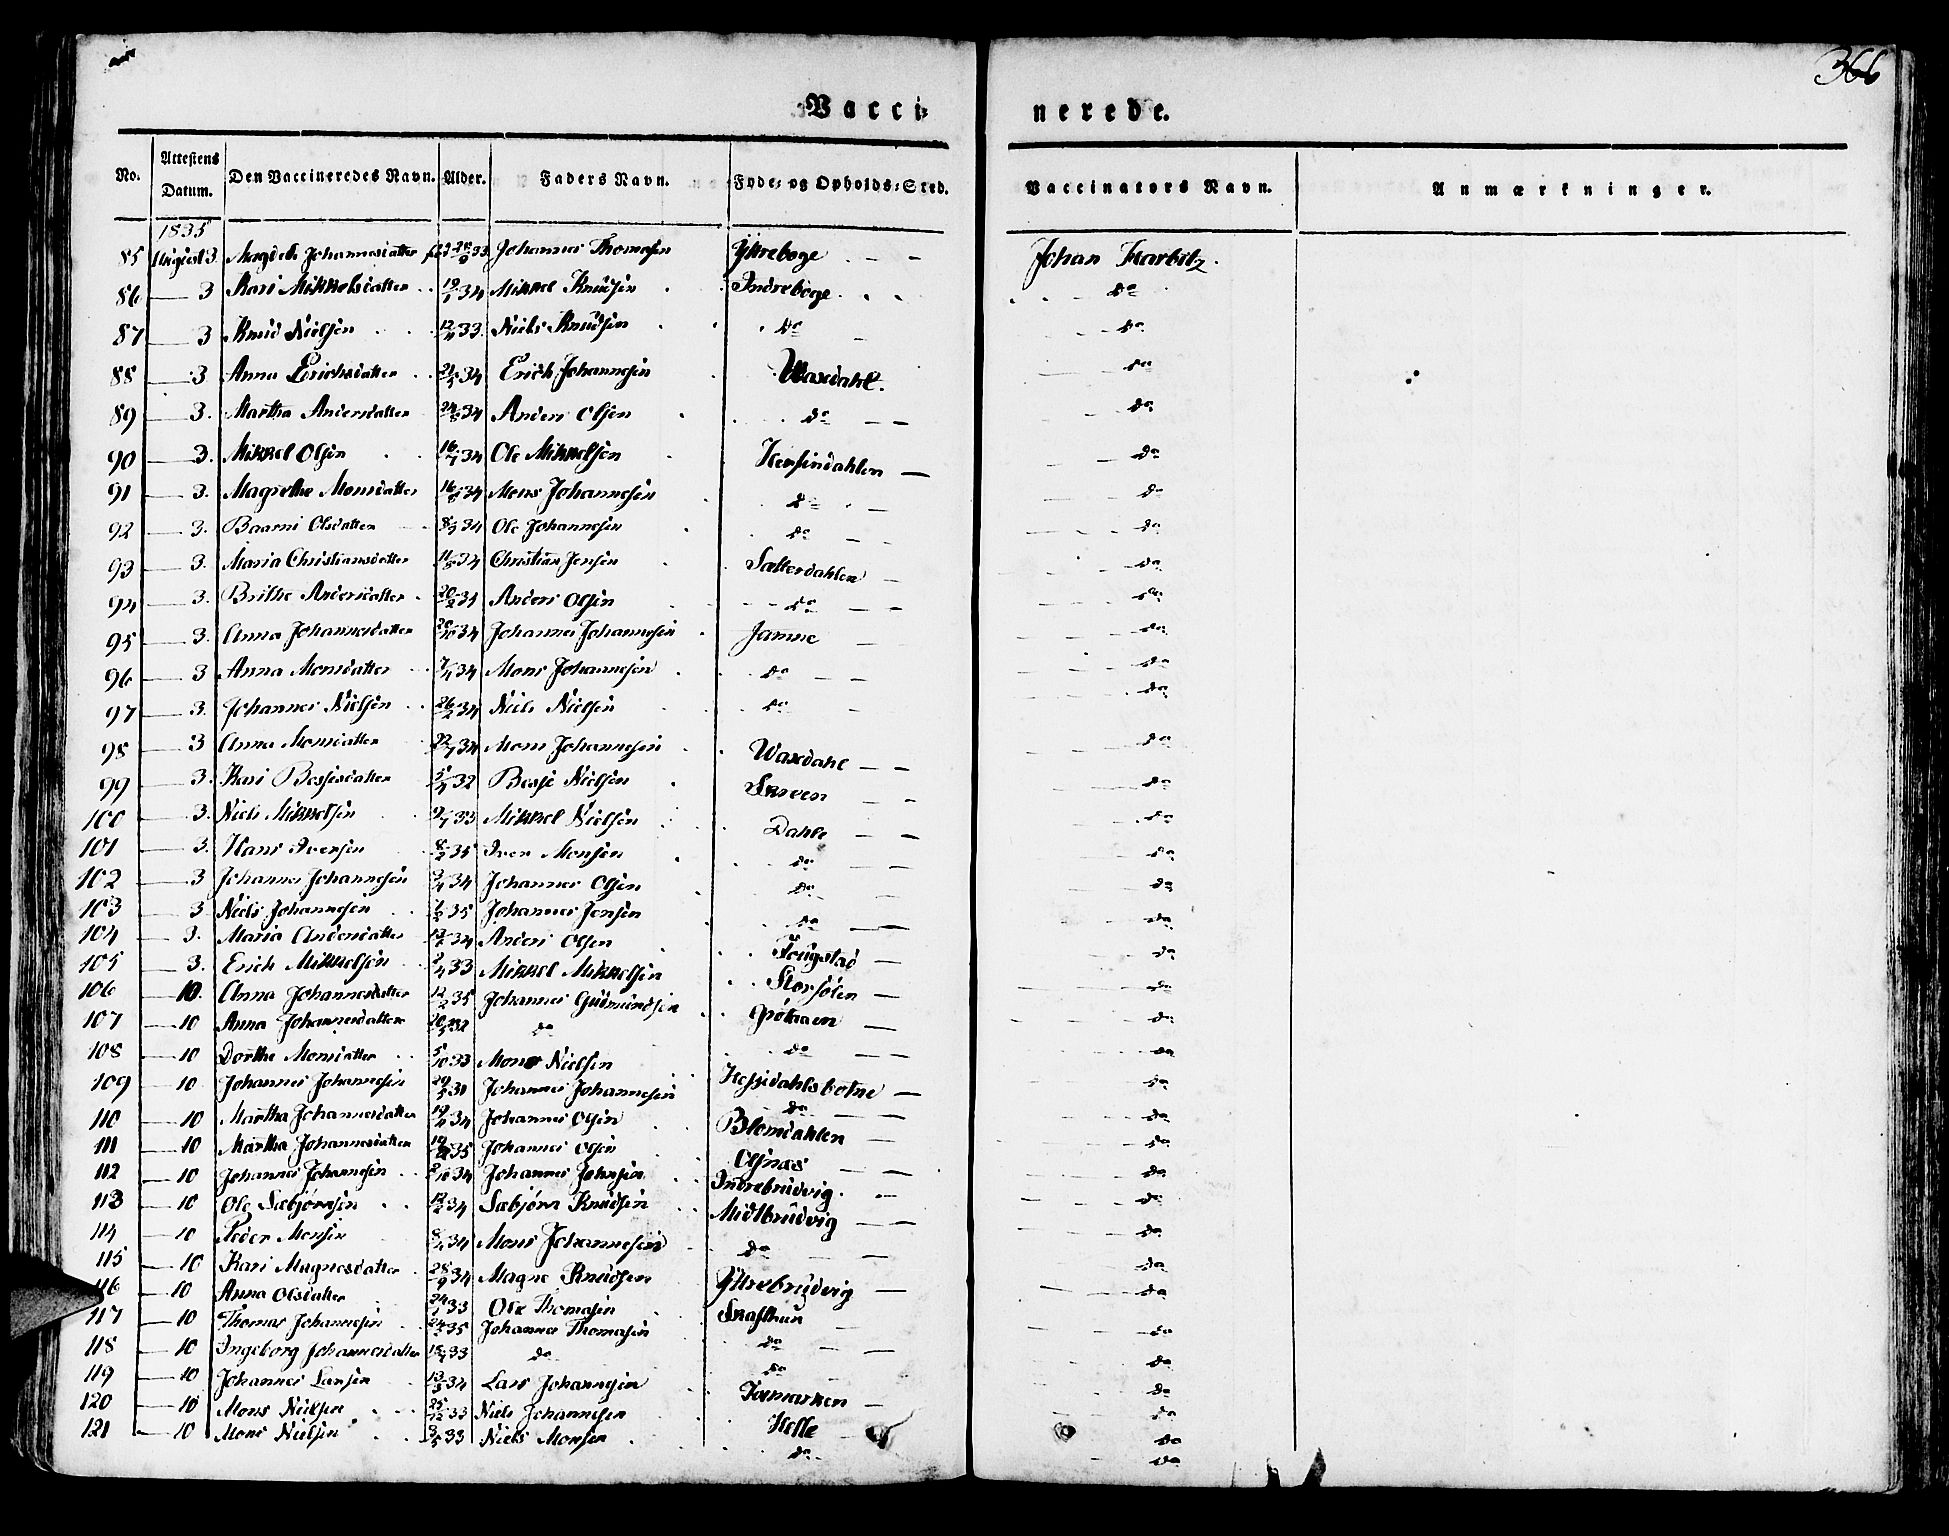 366
Vaccinerede.
No. Attestens Datum. Den Vaccineredes Navn. Alder. Faders Navn. Føde- og Opholds-Sted. Vaccinators Navn. Anmærkninger.
1835
85 August 3. Johannesdatter 33 Johannes Thomasen Yttrebøge Johan
86 3 Kari Mikkelsdatter 19/1 34 Mikkel Knudsen Indrebøge do
87 3 Knud Nielsen 33. Niels Knudsen do do
88 3 Anna Erichsdatter 34 Erich Johannesen Waxdahl. do
89 3. Martha Andersdatter 34 Anders Olsen do do
90 3. Mikkel Olsen 34 Ole Mikkelsen do
91 3. Magrethe Monsdatter 34 Mons Johannesen do do
92 3. Baarni Olsdatter 34 Ole Johannesen do do
93 3. Maria Christiansdatter 34 Christian Jensen Sætterdahlen do
94 3. Brithe Andersdatter Anders Olsen do do
95 3. Anna Johannesdatter 34 Johannes Johannesen Jamne do
96 3 Anna Monsdatter 34 Mons Johannesen do do
97 3. Johannes Nielsen 26/2 34 Niels Nielsen do do
98 3 Anna Monsdatter 34 Mons Johannesen Waxdahl do
99 3. Kari 32 Nielsen Skreen do
100 3. Niels Mikkelsen 33 Mikkel Nielsen Dahle do
101 3. Hans Iversen 35 Iver Monsen do do
102 3 Johannes Johannesen 34 Johannes Olsen do do
103 3 Niels Johannesen 35 Johannes Jensen do do
104 3. Maria Andersdatter 34 Anders Olsen do
105 3. Erich Mikkelsen 33 Mikkel Mikkelsen do
106 10. Anna Johannesdatter 12/2 35 Johannes Gudmundsen do
107 10 Anna Johannesdatter 32 do do
108 10 Dorthe Monsdatter 5/10 33 Mons Nielsen do do
109 10 Johannes Johannesen 31 Johannes Johannesen Hesjedahlsbotne do
110 10 Martha Johannesdatter 34 Johannes Olsen do do
111 10 Martha Johannesdatter 35 Johannes Olsen Blomdahlen do
112 10 Johannes Johannesen 34 Johannes Johnsen Olsnæs do
113 10 Ole Sæbjørnsen 34 Sæbjørn Knudsen Indrebrudvig. do
114 10 Peder Monsen 34 Mons Johannesen Midtbrudvig do
115 10 Kari Magnesdatter 28/9 34 Magne Knudsen do do
116 10 Anna Olsdatter 33 Ole Thomasen Yttrebrudvig do
117 10 Thomas Johannesen 35 Johannes Thomasen Skafthun do
118 10 Ingeborg Johannesdatter 33 do do do
119 10 Johannes Larsen 34 Lars Johannesen do do
120 10 Mons Nielsen 25/12 33 Niels Johannesen do
121 10 Mons Nielsen 33 Niels Monsen Helle do
do do